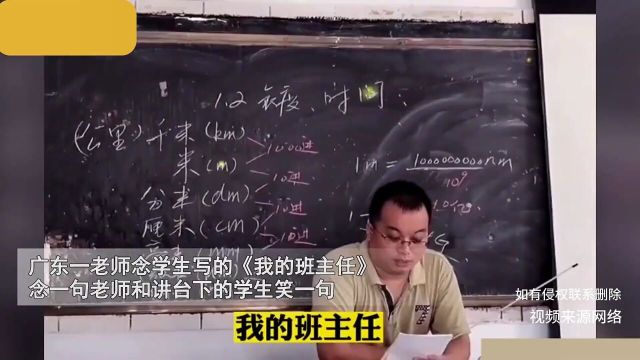 1.2 长度、时间
(公里) 千米 (km)
1000进
米 (m)
10进
分米 (dm)
10进
厘米 (cm)
10进
1m = 1000000000nm
10⁹
广东一老师念学生写的《我的班主任》
念一句老师和讲台下的学生笑一句
如有侵权联系删除
视频来源网络
我的班主任